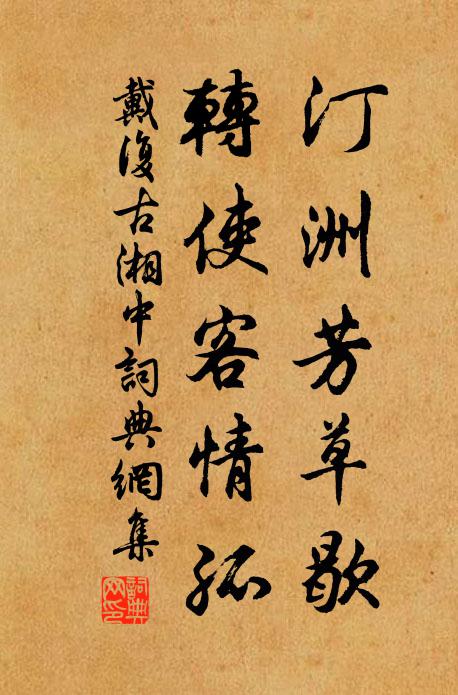 汀洲芳草歇
轉使客情孤
戴復古湘中詞典網集
詞典網印